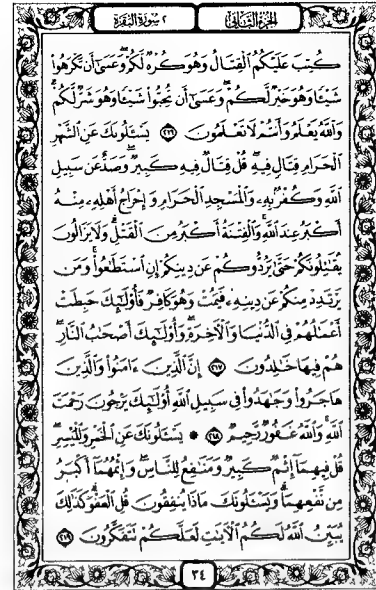 الجزء الثاني ٢ سورة البقرة
كُتِبَ عَلَيْكُمُ ٱلْقِتَالُ وَهُوَ كُرْهٌ لَّكُمْ ۖ وَعَسَىٰٓ أَن تَكْرَهُوا۟
شَيْـًٔا وَهُوَ خَيْرٌ لَّكُمْ ۖ وَعَسَىٰٓ أَن تُحِبُّوا۟ شَيْـًٔا وَهُوَ شَرٌّ لَّكُمْ ۗ
وَٱللَّهُ يَعْلَمُ وَأَنتُمْ لَا تَعْلَمُونَ ٢١٦ يَسْـَٔلُونَكَ عَنِ ٱلشَّهْرِ
ٱلْحَرَامِ قِتَالٍ فِيهِ ۖ قُلْ قِتَالٌ فِيهِ كَبِيرٌ ۖ وَصَدٌّ عَن سَبِيلِ
ٱللَّهِ وَكُفْرٌۢ بِهِۦ وَٱلْمَسْجِدِ ٱلْحَرَامِ وَإِخْرَاجُ أَهْلِهِۦ مِنْهُ
أَكْبَرُ عِندَ ٱللَّهِ ۚ وَٱلْفِتْنَةُ أَكْبَرُ مِنَ ٱلْقَتْلِ ۗ وَلَا يَزَالُونَ
يُقَـٰتِلُونَكُمْ حَتَّىٰ يَرُدُّوكُمْ عَن دِينِكُمْ إِنِ ٱسْتَطَـٰعُوا۟ ۚ وَمَن
يَرْتَدِدْ مِنكُمْ عَن دِينِهِۦ فَيَمُتْ وَهُوَ كَافِرٌ فَأُو۟لَـٰٓئِكَ حَبِطَتْ
أَعْمَـٰلُهُمْ فِى ٱلدُّنْيَا وَٱلْـَٔاخِرَةِ ۖ وَأُو۟لَـٰٓئِكَ أَصْحَـٰبُ ٱلنَّارِ ۖ
هُمْ فِيهَا خَـٰلِدُونَ ٢١٧ إِنَّ ٱلَّذِينَ ءَامَنُوا۟ وَٱلَّذِينَ
هَاجَرُوا۟ وَجَـٰهَدُوا۟ فِى سَبِيلِ ٱللَّهِ أُو۟لَـٰٓئِكَ يَرْجُونَ رَحْمَتَ
ٱللَّهِ ۚ وَٱللَّهُ غَفُورٌ رَّحِيمٌ ٢١٨ ۞ يَسْـَٔلُونَكَ عَنِ ٱلْخَمْرِ وَٱلْمَيْسِرِ ۖ
قُلْ فِيهِمَآ إِثْمٌ كَبِيرٌ وَمَنَـٰفِعُ لِلنَّاسِ وَإِثْمُهُمَآ أَكْبَرُ
مِن نَّفْعِهِمَا ۗ وَيَسْـَٔلُونَكَ مَاذَا يُنفِقُونَ قُلِ ٱلْعَفْوَ ۗ كَذَٰلِكَ
يُبَيِّنُ ٱللَّهُ لَكُمُ ٱلْـَٔايَـٰتِ لَعَلَّكُمْ تَتَفَكَّرُونَ ٢١٩
٣٤